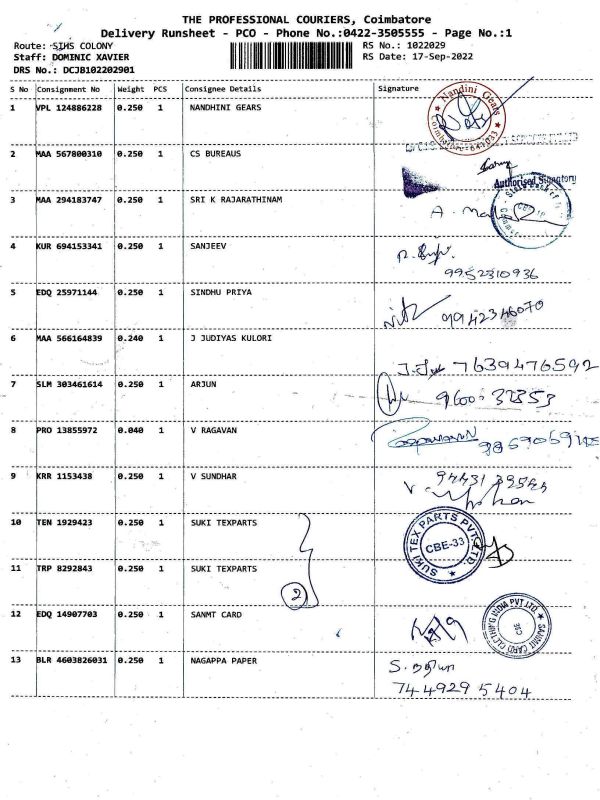 THE PROFESSIONAL COURIERS, Coimbatore
Delivery Runsheet - PCO - Phone No.:0422-3505555 - Page No.:1
Route: SIHS COLONY RS No.: 1022029
Staff: DOMINIC XAVIER RS Date: 17-Sep-2022
DRS No.: DCJB102202901
S No Consignment No Weight PCS Consignee Details Signature
1 VPL 124886228 0.250 1 NANDHINI GEARS
Nandini Gears
Coimbatore - 641033
2 MAA 567800310 0.250 1 CS BUREAUS
Authorised Signatory
3 MAA 294183747 0.250 1 SRI K RAJARATHINAM
4 KUR 694153341 0.250 1 SANJEEV
9952310936
5 EDQ 25971144 0.250 1 SINDHU PRIYA
9942346070
6 MAA 566164839 0.240 1 J JUDIYAS KULORI
7639476592
7 SLM 303461614 0.250 1 ARJUN
9600 32353
8 PRO 13855972 0.040 1 V RAGAVAN
9 KRR 1153438 0.250 1 V SUNDHAR
10 TEN 1929423 0.250 1 SUKI TEXPARTS
SUKI TEX PARTS PVT. LTD.
CBE-33
11 TRP 8292843 0.250 1 SUKI TEXPARTS
2
12 EDQ 14907703 0.250 1 SANMT CARD
SANMIT CARD CLOTHING INDIA PVT. LTD.
CBE
13 BLR 4603826031 0.250 1 NAGAPPA PAPER
S. நதியா
744929 5404